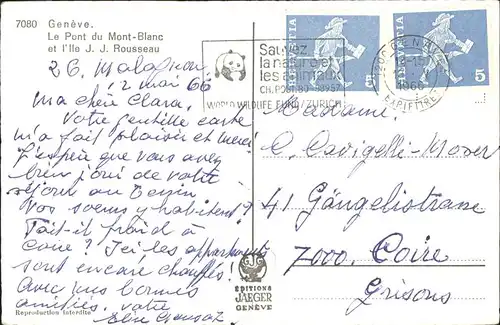 7080 Genève.
Le Pont du Mont-Blanc
et l'Ile J. J. Rousseau
26. Malagnou
2 mai 66
Ma chère Clara.
Votre gentille carte
m'a fait plaisir et merci
J'espère que vous avez
bien joui de votre
séjour au Tessin
Vos soeurs y habitent?
Fait-il froid à
Coire? Ici les appartements
sont encore chauffés!
Avec mes bonnes
amitiés. Votre
Reproduction interdite
ÉDITIONS
JAEGER
GENÈVE
Sauvez
la nature et
les animaux
CH. POST. 80-
WORLD WILDLIFE FUND/ZURICH
HELVETIA
5
HELVETIA
5
1966
Madame
C. Cavigelli-Moser
41 Gängelistrasse
7000. Coire
Grisons